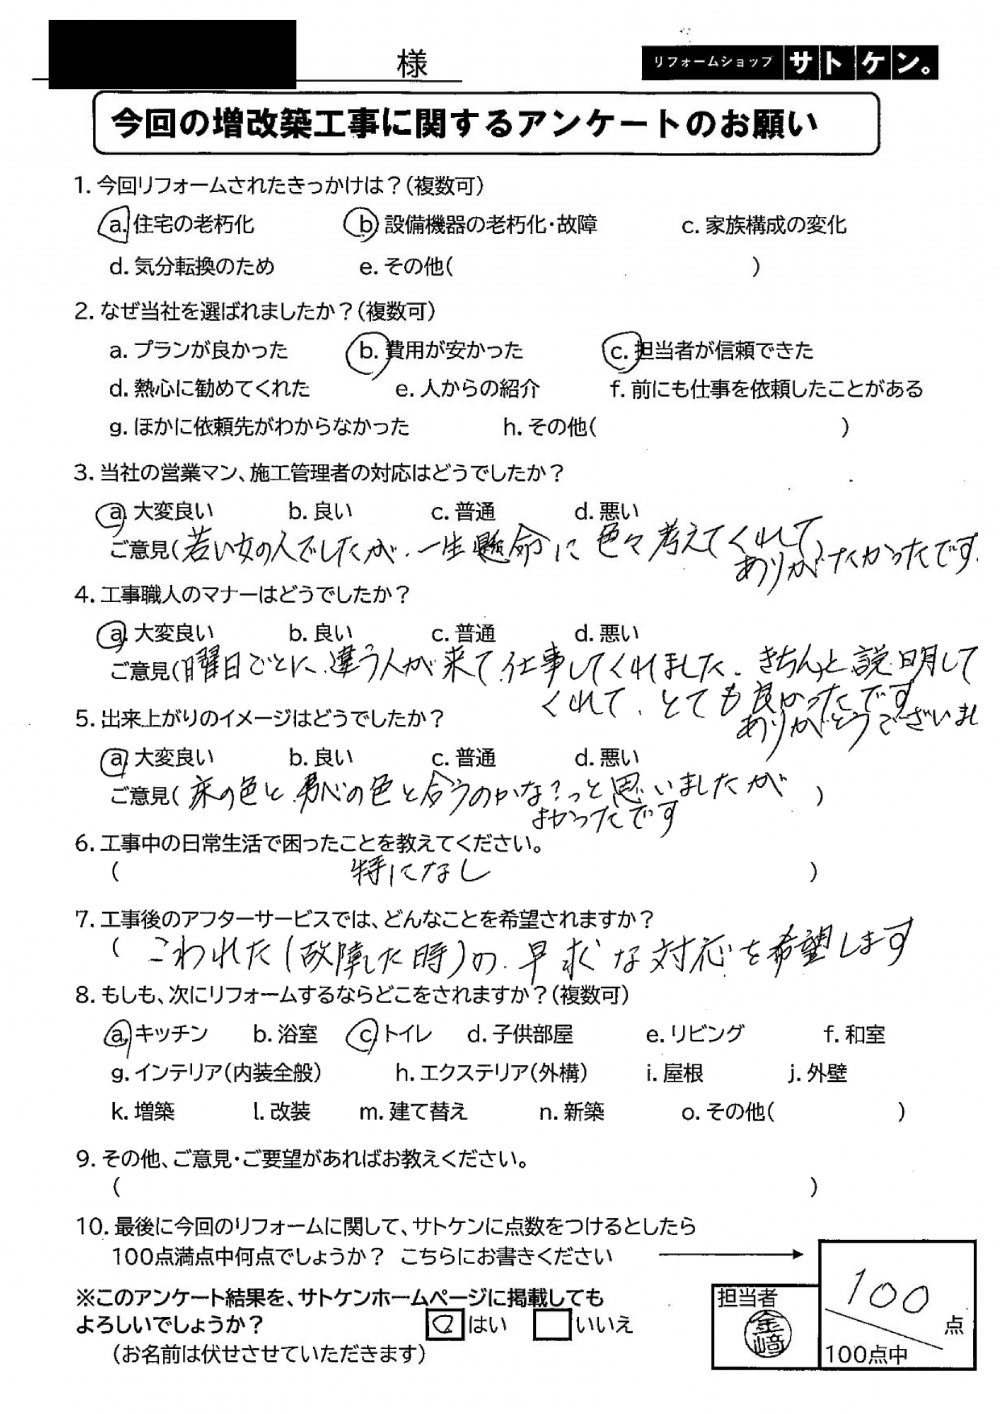 様
リフォームショップ サトケン。
今回の増改築工事に関するアンケートのお願い
1. 今回リフォームされたきっかけは？（複数可）
a. 住宅の老朽化 b. 設備機器の老朽化・故障 c. 家族構成の変化
d. 気分転換のため e. その他（ ）
2. なぜ当社を選ばれましたか？（複数可）
a. プランが良かった b. 費用が安かった c. 担当者が信頼できた
d. 熱心に勧めてくれた e. 人からの紹介 f. 前にも仕事を依頼したことがある
g. ほかに依頼先がわからなかった h. その他（ ）
3. 当社の営業マン、施工管理者の対応はどうでしたか？
a. 大変良い b. 良い c. 普通 d. 悪い
ご意見（若い女の人でしたが、一生懸命に色々考えてくれて、
ありがたかったです。
4. 工事職人のマナーはどうでしたか？
a. 大変良い b. 良い c. 普通 d. 悪い
ご意見（曜日ごとに、違う人が来て、仕事してくれました。きちんと説明して
くれて、とても良かったです
ありがとうございまし
5. 出来上がりのイメージはどうでしたか？
a. 大変良い b. 良い c. 普通 d. 悪い
ご意見（床の色と、の色と合うのかな？っと思いましたが ）
よかったです
6. 工事中の日常生活で困ったことを教えてください。
（ 特になし ）
7. 工事後のアフターサービスでは、どんなことを希望されますか？
（ こわれた（故障した時）の、早求な対応を希望します
8. もしも、次にリフォームするならどこをされますか？（複数可）
a. キッチン b. 浴室 c. トイレ d. 子供部屋 e. リビング f. 和室
g. インテリア（内装全般） h. エクステリア（外構） i. 屋根 j. 外壁
k. 増築 l. 改装 m. 建て替え n. 新築 o. その他（ ）
9. その他、ご意見・ご要望があればお教えください。
（ ）
10. 最後に今回のリフォームに関して、サトケンに点数をつけるとしたら
100点満点中何点でしょうか？ こちらにお書きください
100 点
100点中
担当者
金﨑
※このアンケート結果を、サトケンホームページに掲載しても
よろしいでしょうか？ はい いいえ
（お名前は伏せさせていただきます）